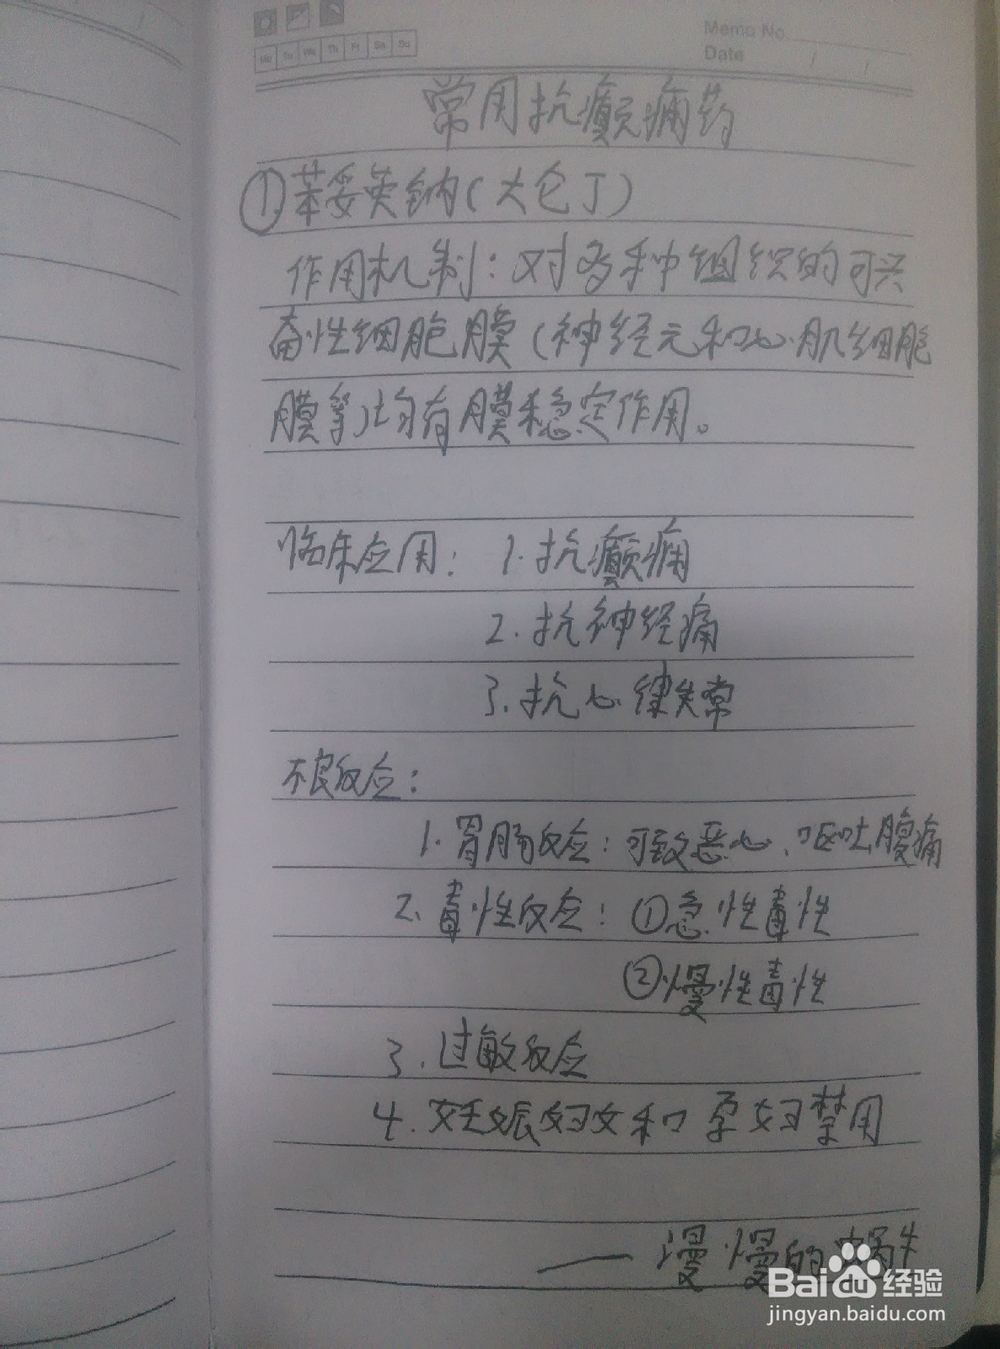 Memo No.
Date / /
Mo Tu We Th Fr Sa Su
常用抗癫痫药
①苯妥英钠(大仑丁)
作用机制:对多种组织的可兴
奋性细胞膜(神经元和心肌细胞
膜等)均有膜稳定作用。
临床应用: 1.抗癫痫
2.抗神经痛
3.抗心律失常
不良反应:
1.胃肠反应:可致恶心、呕吐腹痛
2.毒性反应:①急性毒性
②慢性毒性
3.过敏反应
4.妊娠妇女和孕妇禁用
——漫慢的蜗牛
Baidu经验
jingyan.baidu.com